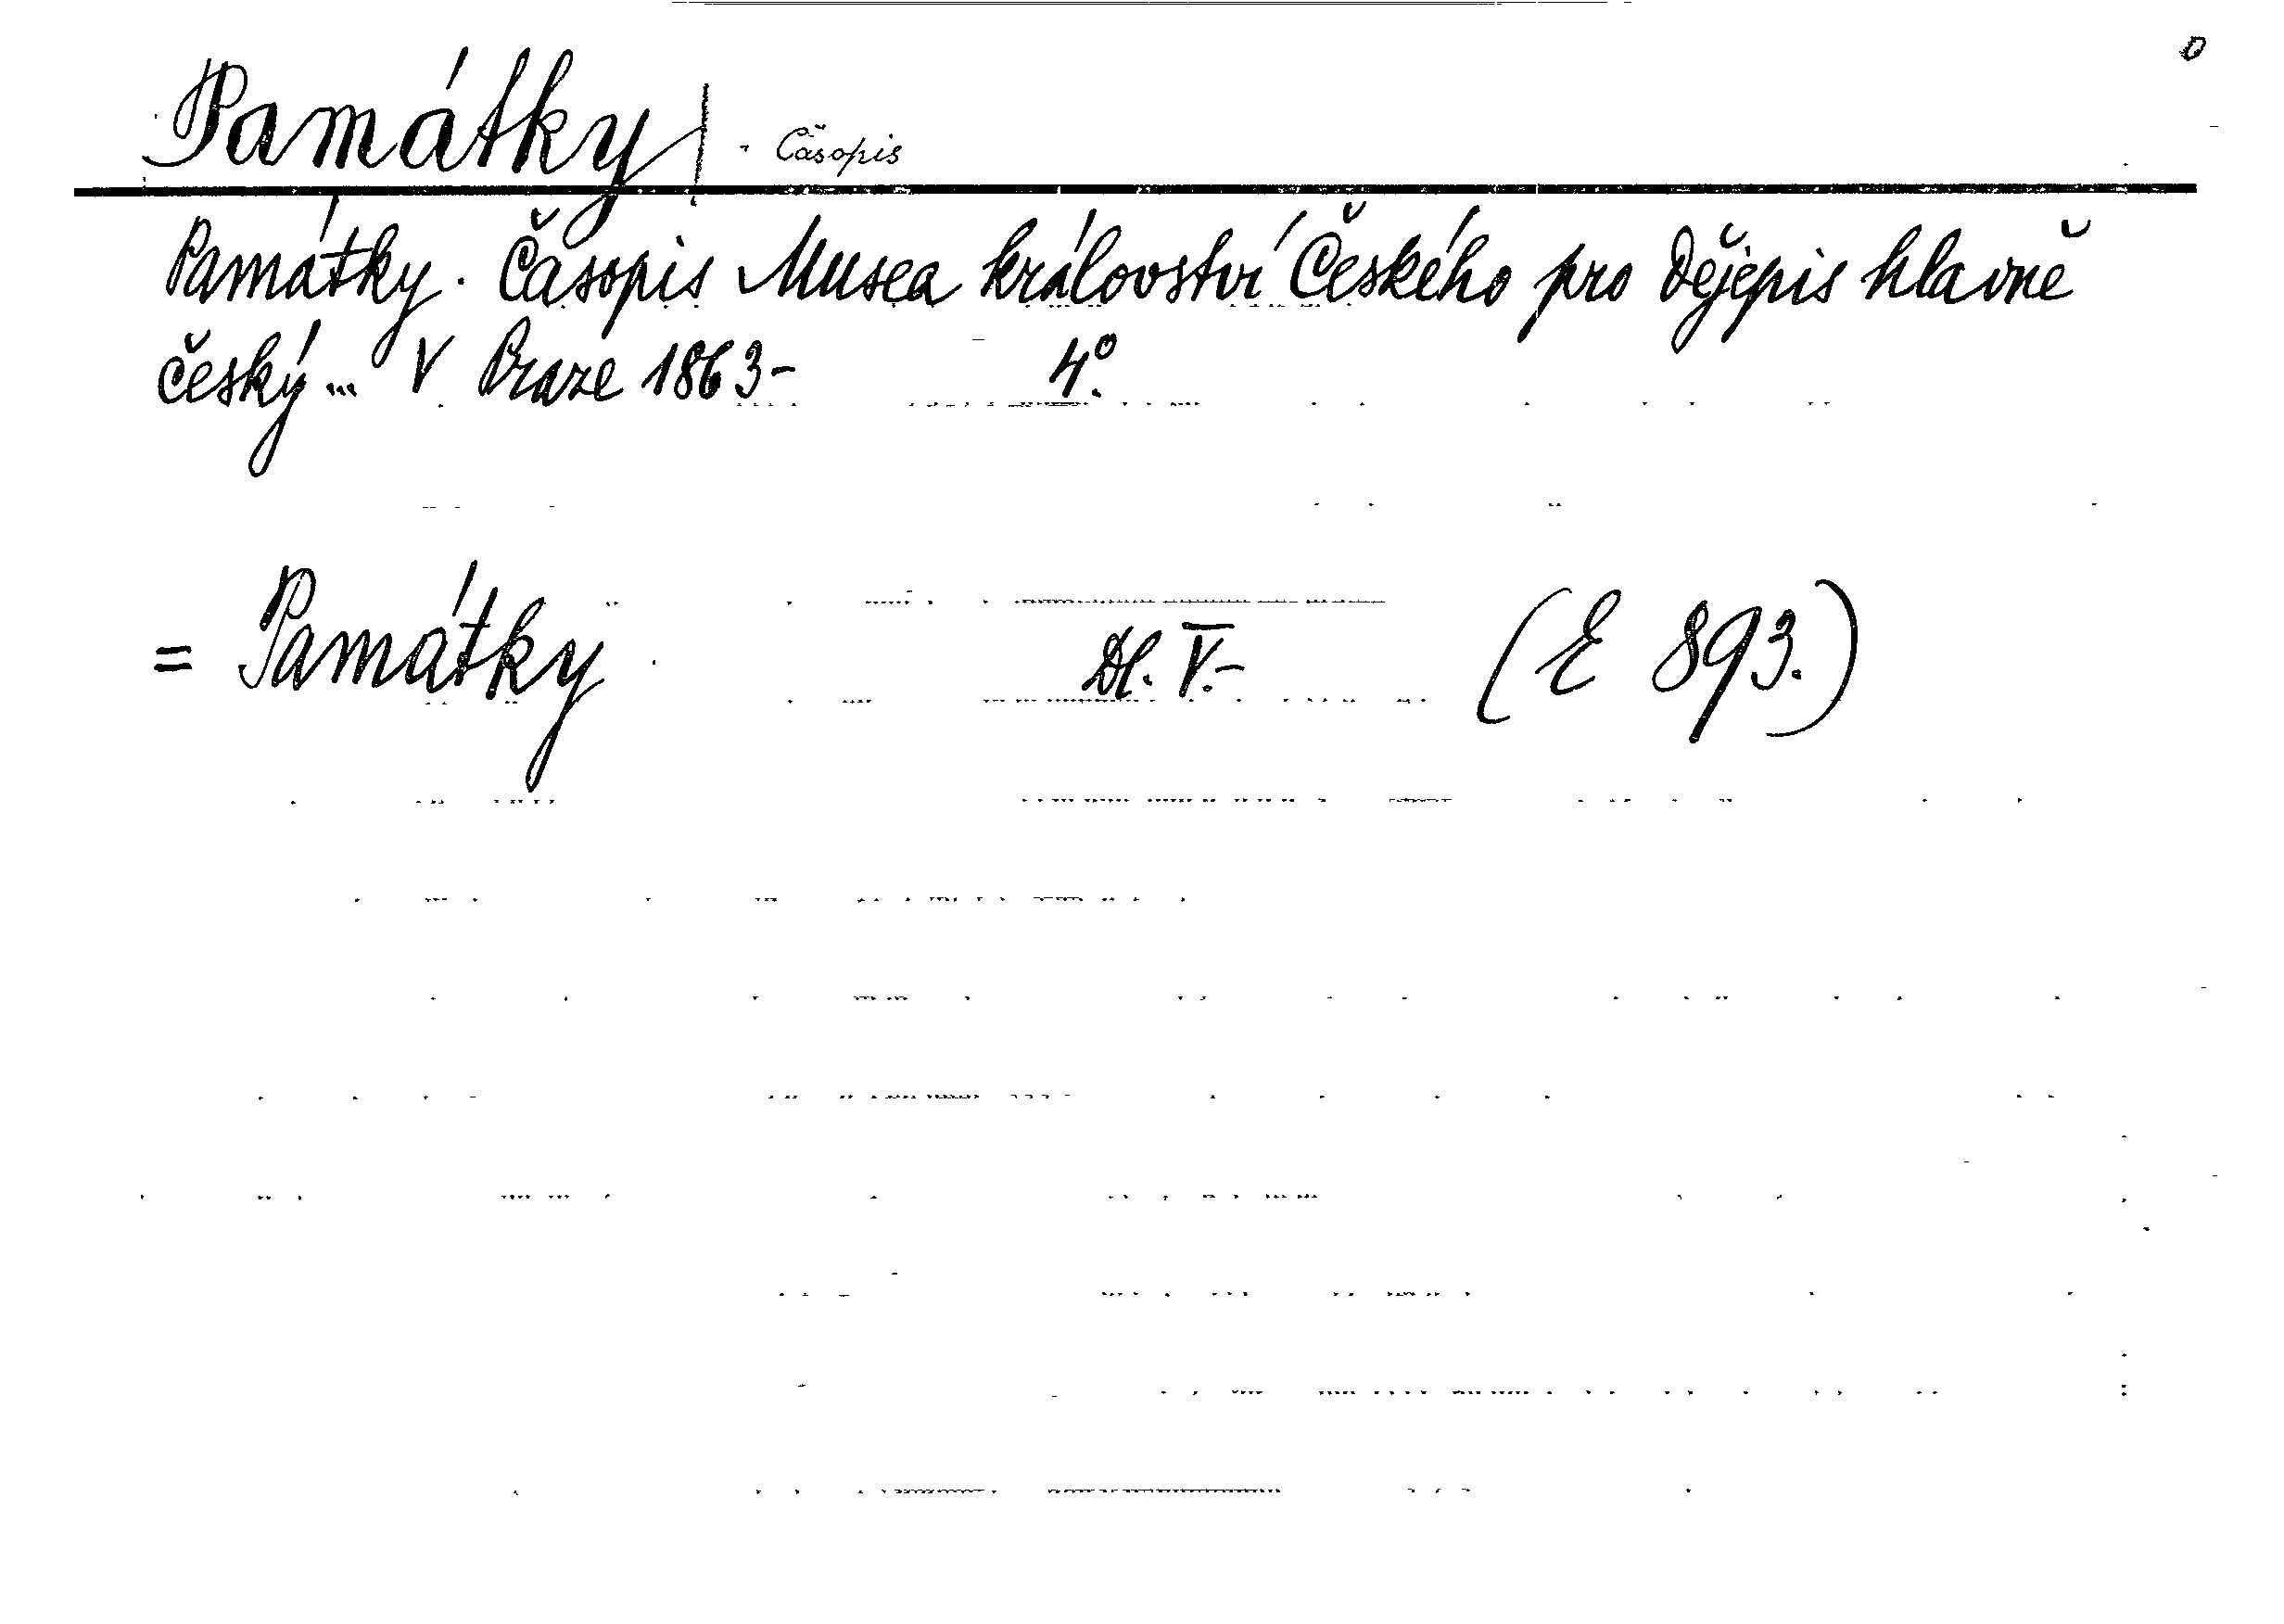 0
Památky | . Časopis
Památky. Časopis Musea království Českého pro Dějepis hlavně
český ... V Praze 1863- 4º.
= Památky Dl. V.- (E 893.)